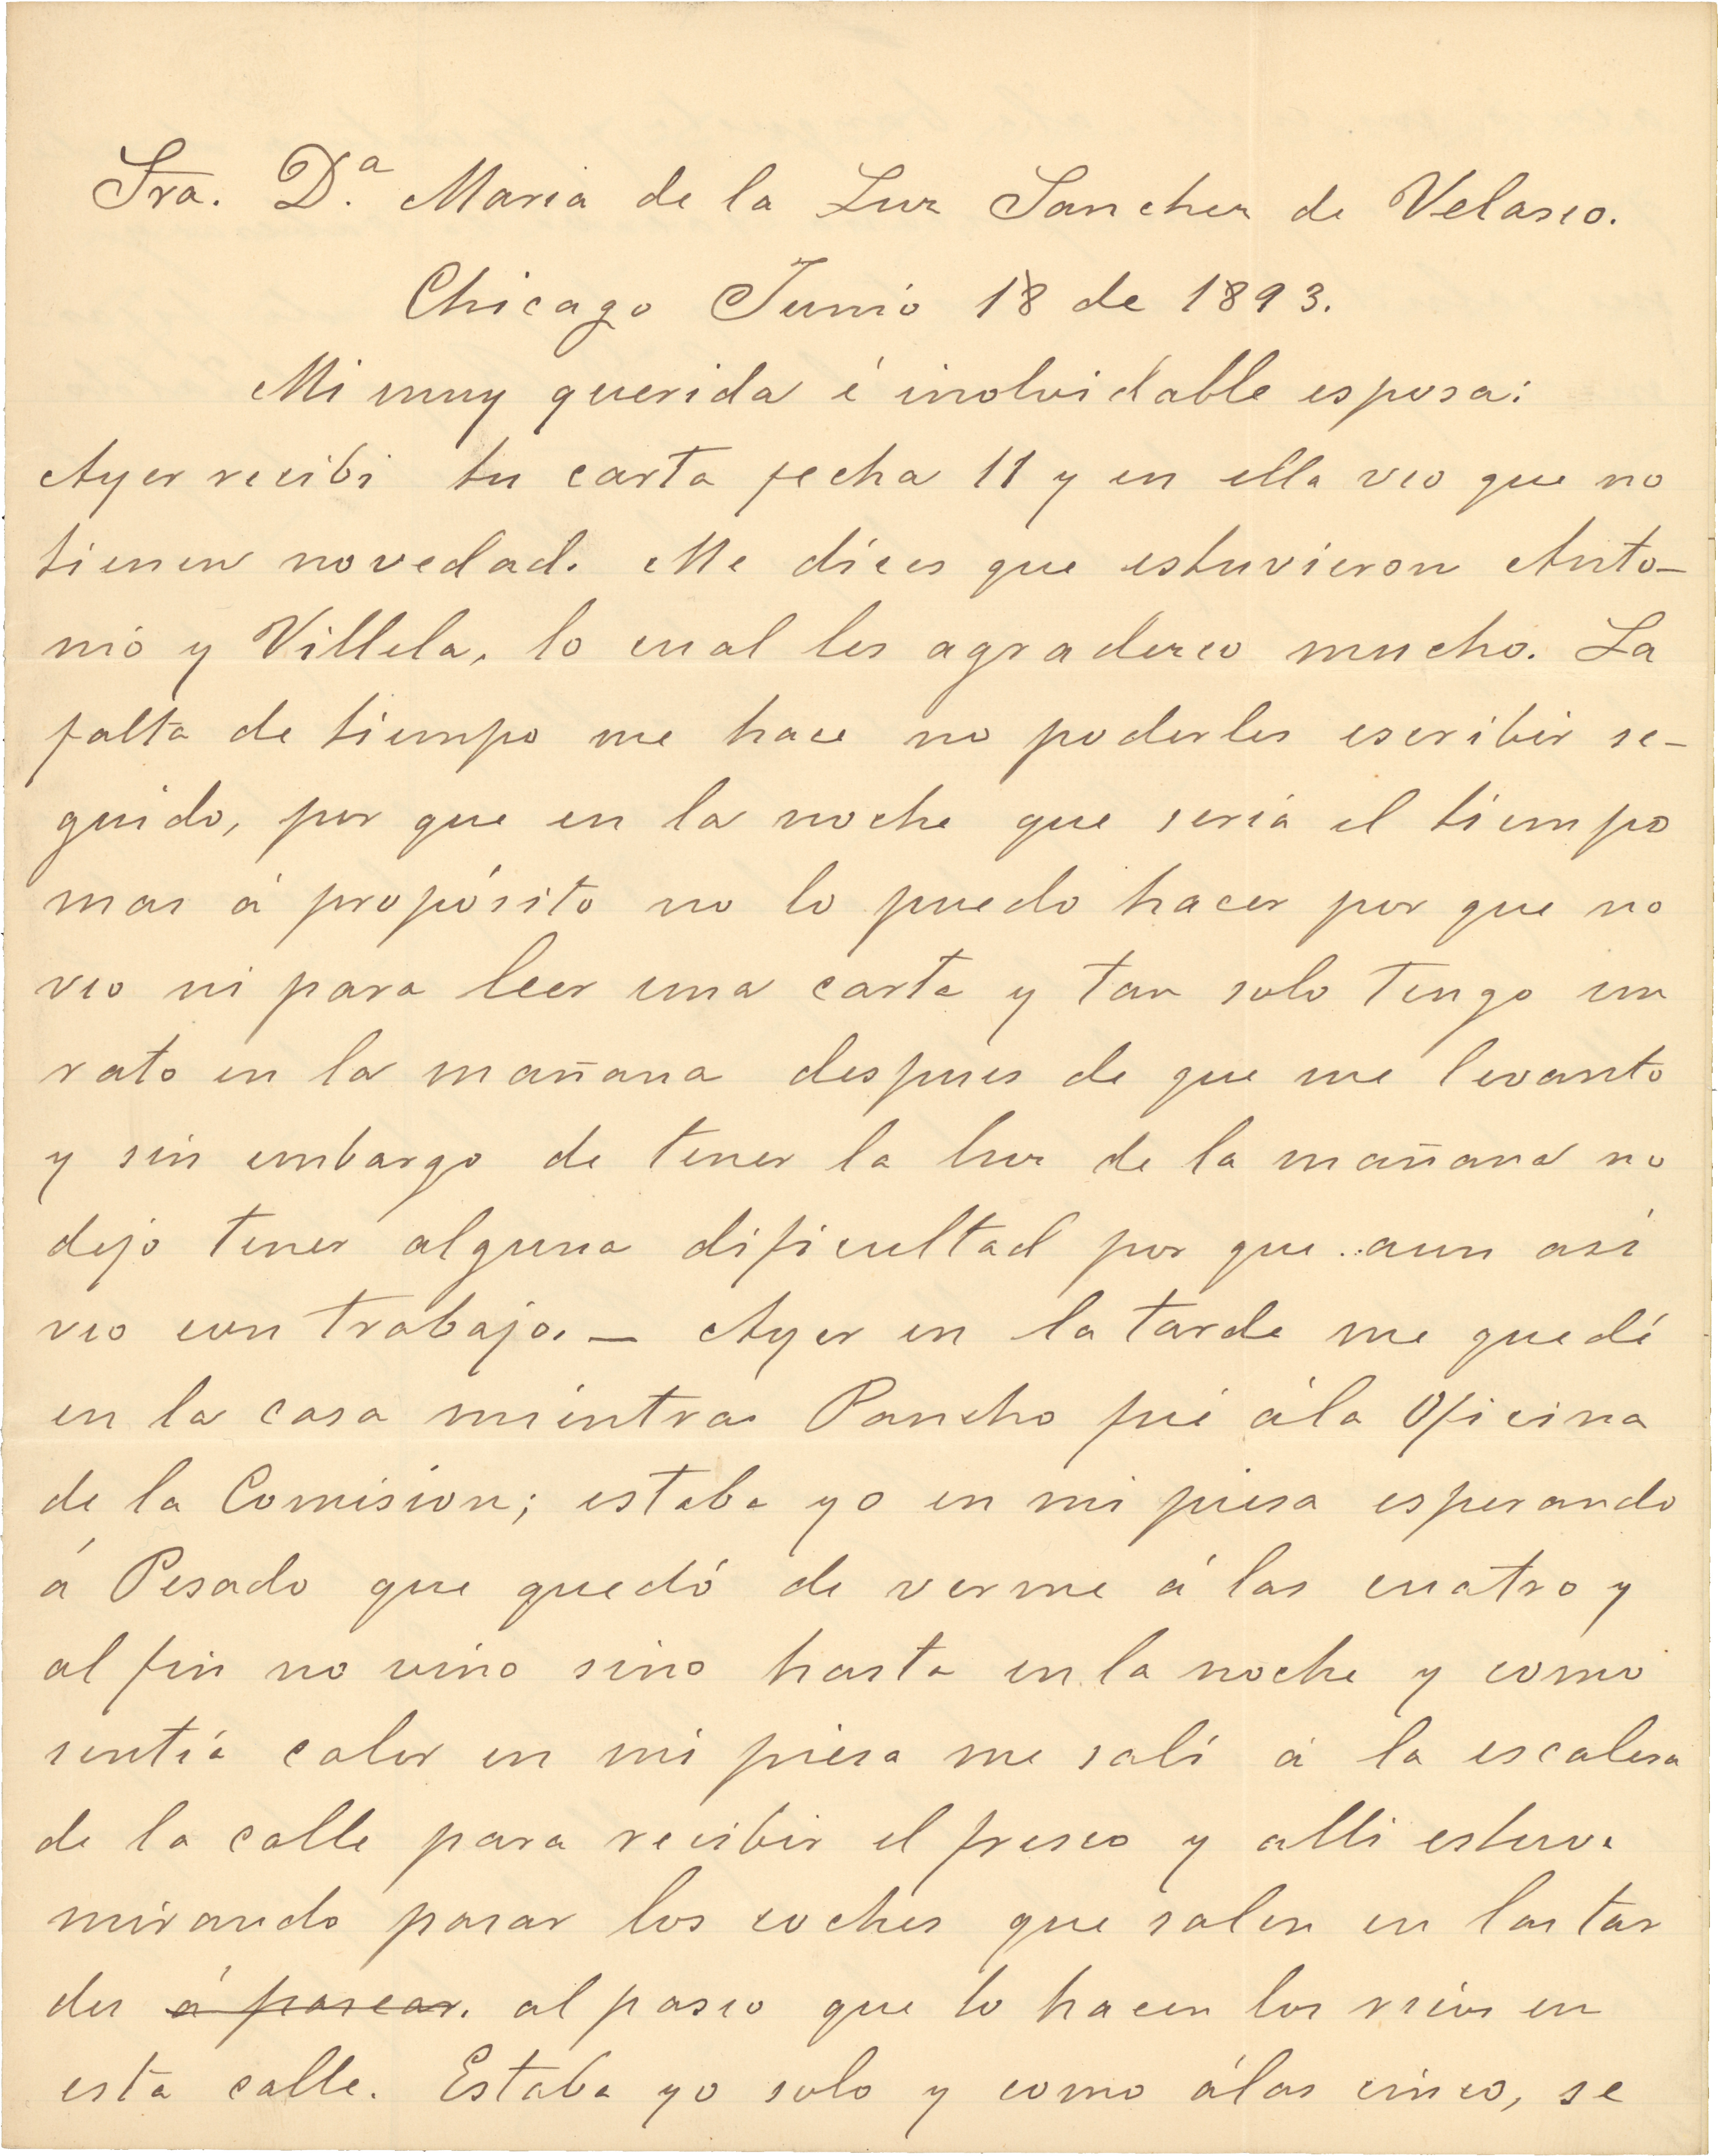 Sra. D.ª Maria de la Luz Sanchez de Velasco.
Chicago Junio 18 de 1893.
Mi muy querida é inolvidable esposa:
Ayer recibi tu carta fecha 11 y en ella veo que no
tienen novedad. Me dices que estuvieron Anto-
nio y Villela, lo cual les agradezco mucho. La
falta de tiempo me hace no poderles escribir se-
guido, por que en la noche que seria el tiempo
mas á propósito no lo puedo hacer por que no
veo ni para leer una carta y tan solo tengo un
rato en la mañana despues de que me levanto
y sin embargo de tener la luz de la mañana no
dejo tener alguna dificultad por que aun asi
veo con trabajo. — Ayer en la tarde me quedé
en la casa mientras Pancho fué á la Oficina
de la Comision; estaba yo en mi pieza esperando
á Pesado que quedó de verme á las cuatro y
al fin no vino sino hasta en la noche y como
sentía calor en mi pieza me salí á la escalera
de la calle para recibir el fresco y alli estuve
mirando pasar los coches que salen en las tar
des á pasear. al paseo que lo hacen los ricos en
esta calle. Estaba yo solo y como á las cinco, se